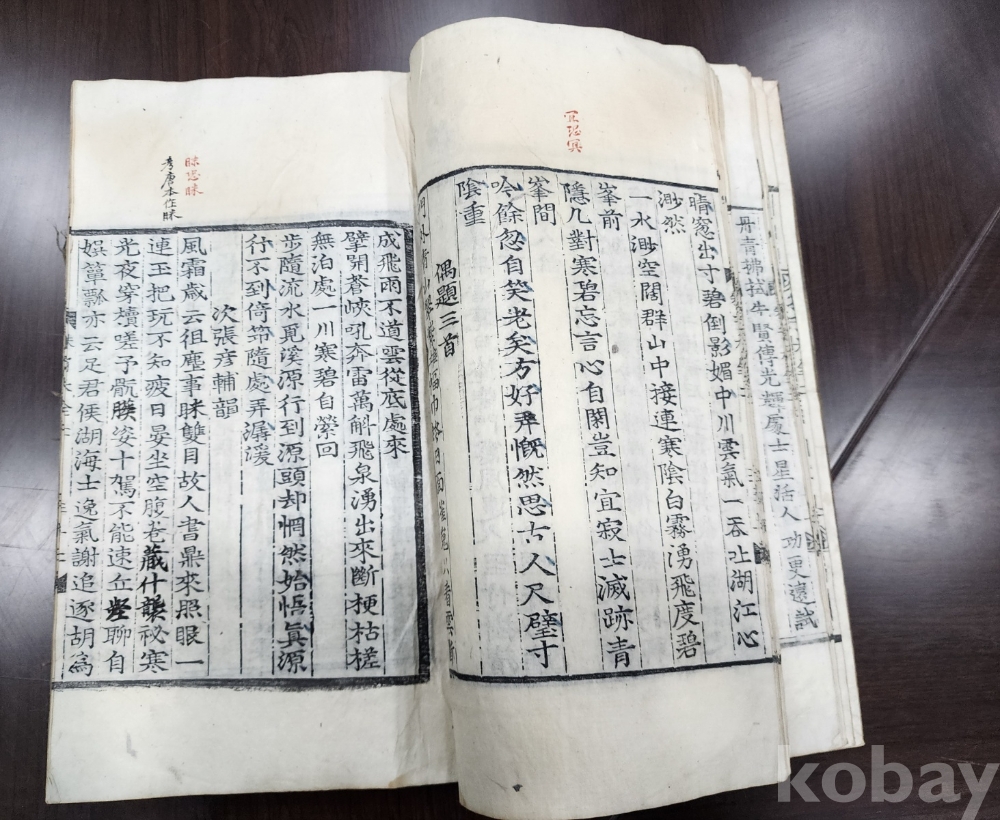 丹青拂拭牛賢傳光輝處士星活人功更遠試
宜恐冥
晴窓出寸碧倒影媚中川雲氣一吞吐湖江心
渺然
一水渺空闊群山中接連寒陰白霧湧飛度碧
峯前
隱几對寒碧忘言心自閑豈知宜寂士滅跡青
峯間
吟餘忽自笑老矣方好弄慨然思古人尺璧寸
陰重
偶題三首
成飛雨不道雲從底處來
擘開蒼峽吼奔雷萬斛飛泉湧出來斷梗枯槎
無泊處一川寒碧自縈回
步隨流水覓溪源行到源頭却惘然始悟眞源
行不到倚笻隨處弄潺湲
次張彦輔韻
風霜歲云徂塵事眯雙目故人書鼎來照眼一
連玉把玩不知疲日晏坐空腹卷藏什襲秘寒
光夜穿牘嗟予骯髒姿十駕不能速丘壑聊自
娯簞瓢亦云足君侯湖海士逸氣謝追逐胡爲
眯恐眛
考唐本作眯
kobay